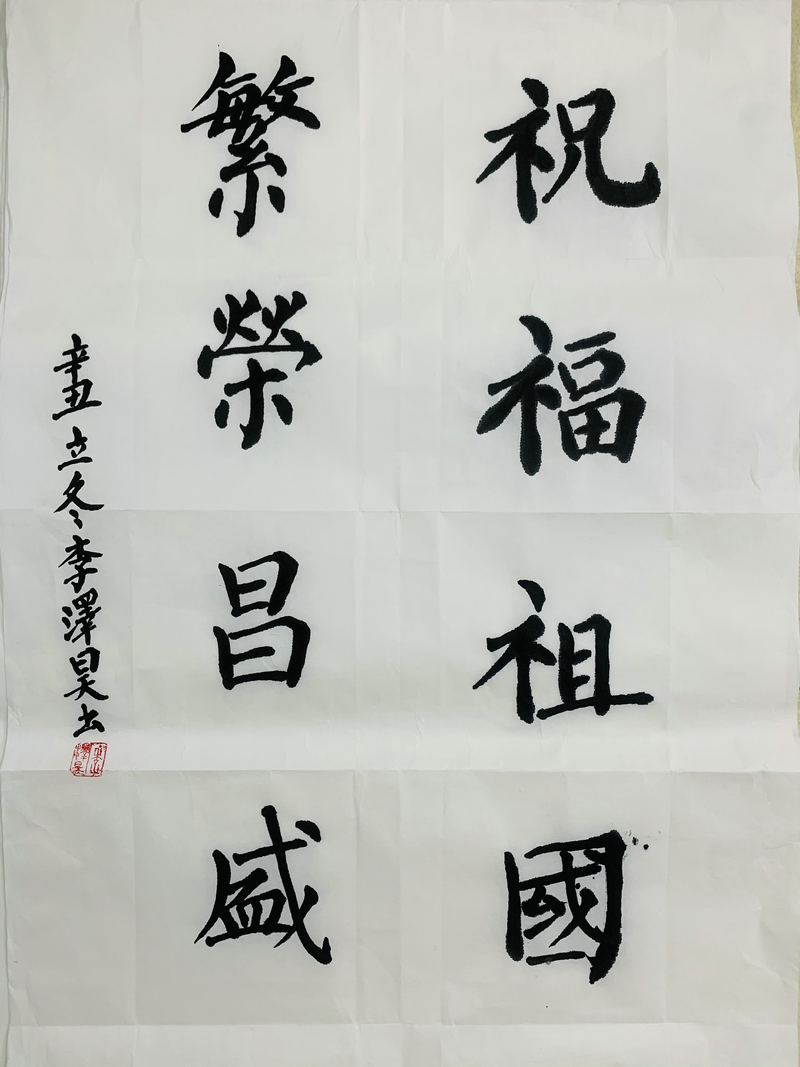 祝福祖國
繁榮昌盛
辛丑立冬李澤昊书